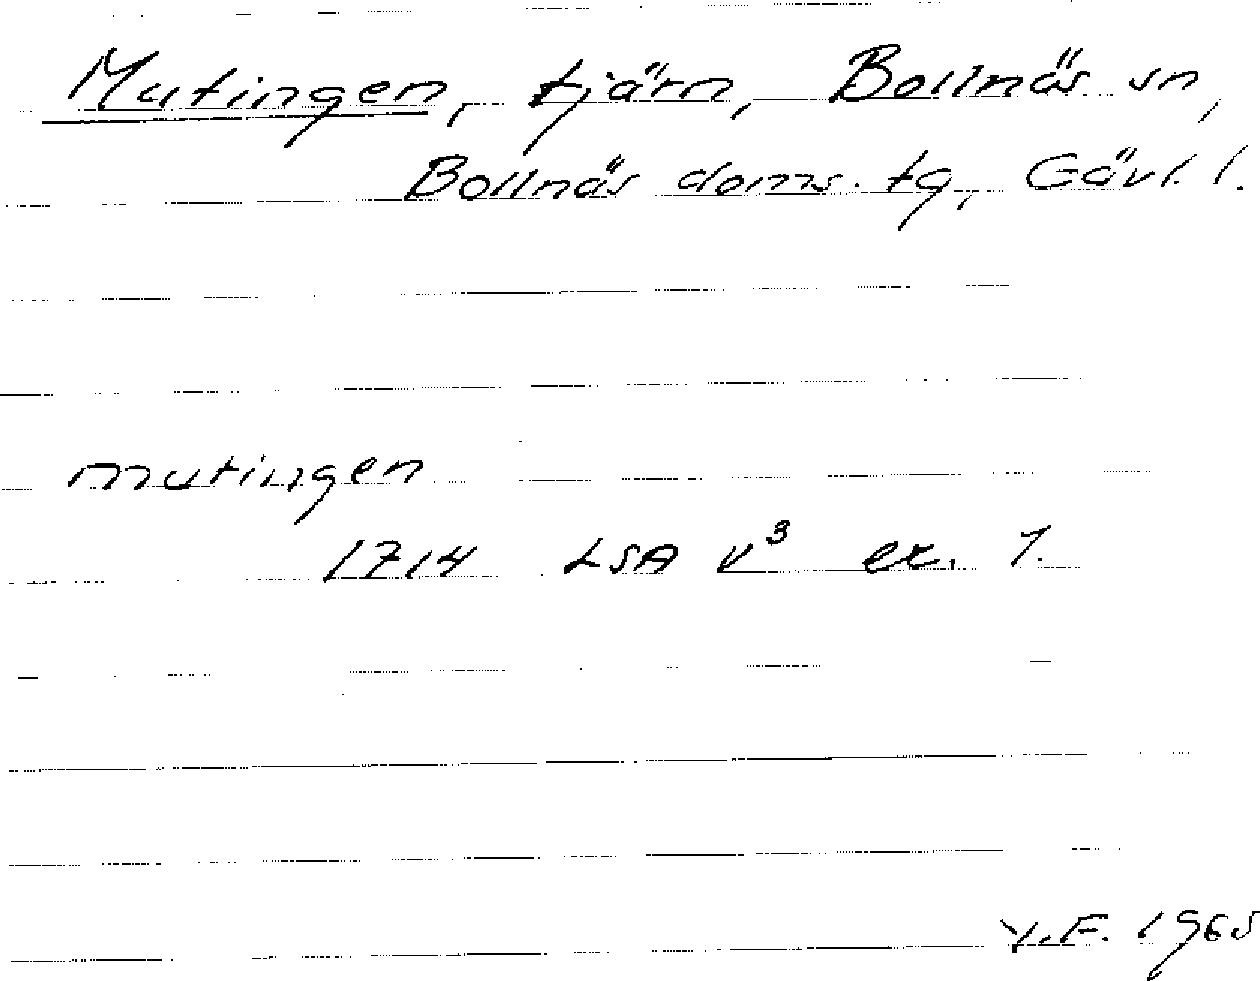 Mutingen, tjärn, Bollnäs sn,
Bollnäs doms. tg, Gävl. l.
mutingen
1714 LSA v³ ex. 1.
Y.F. 1965